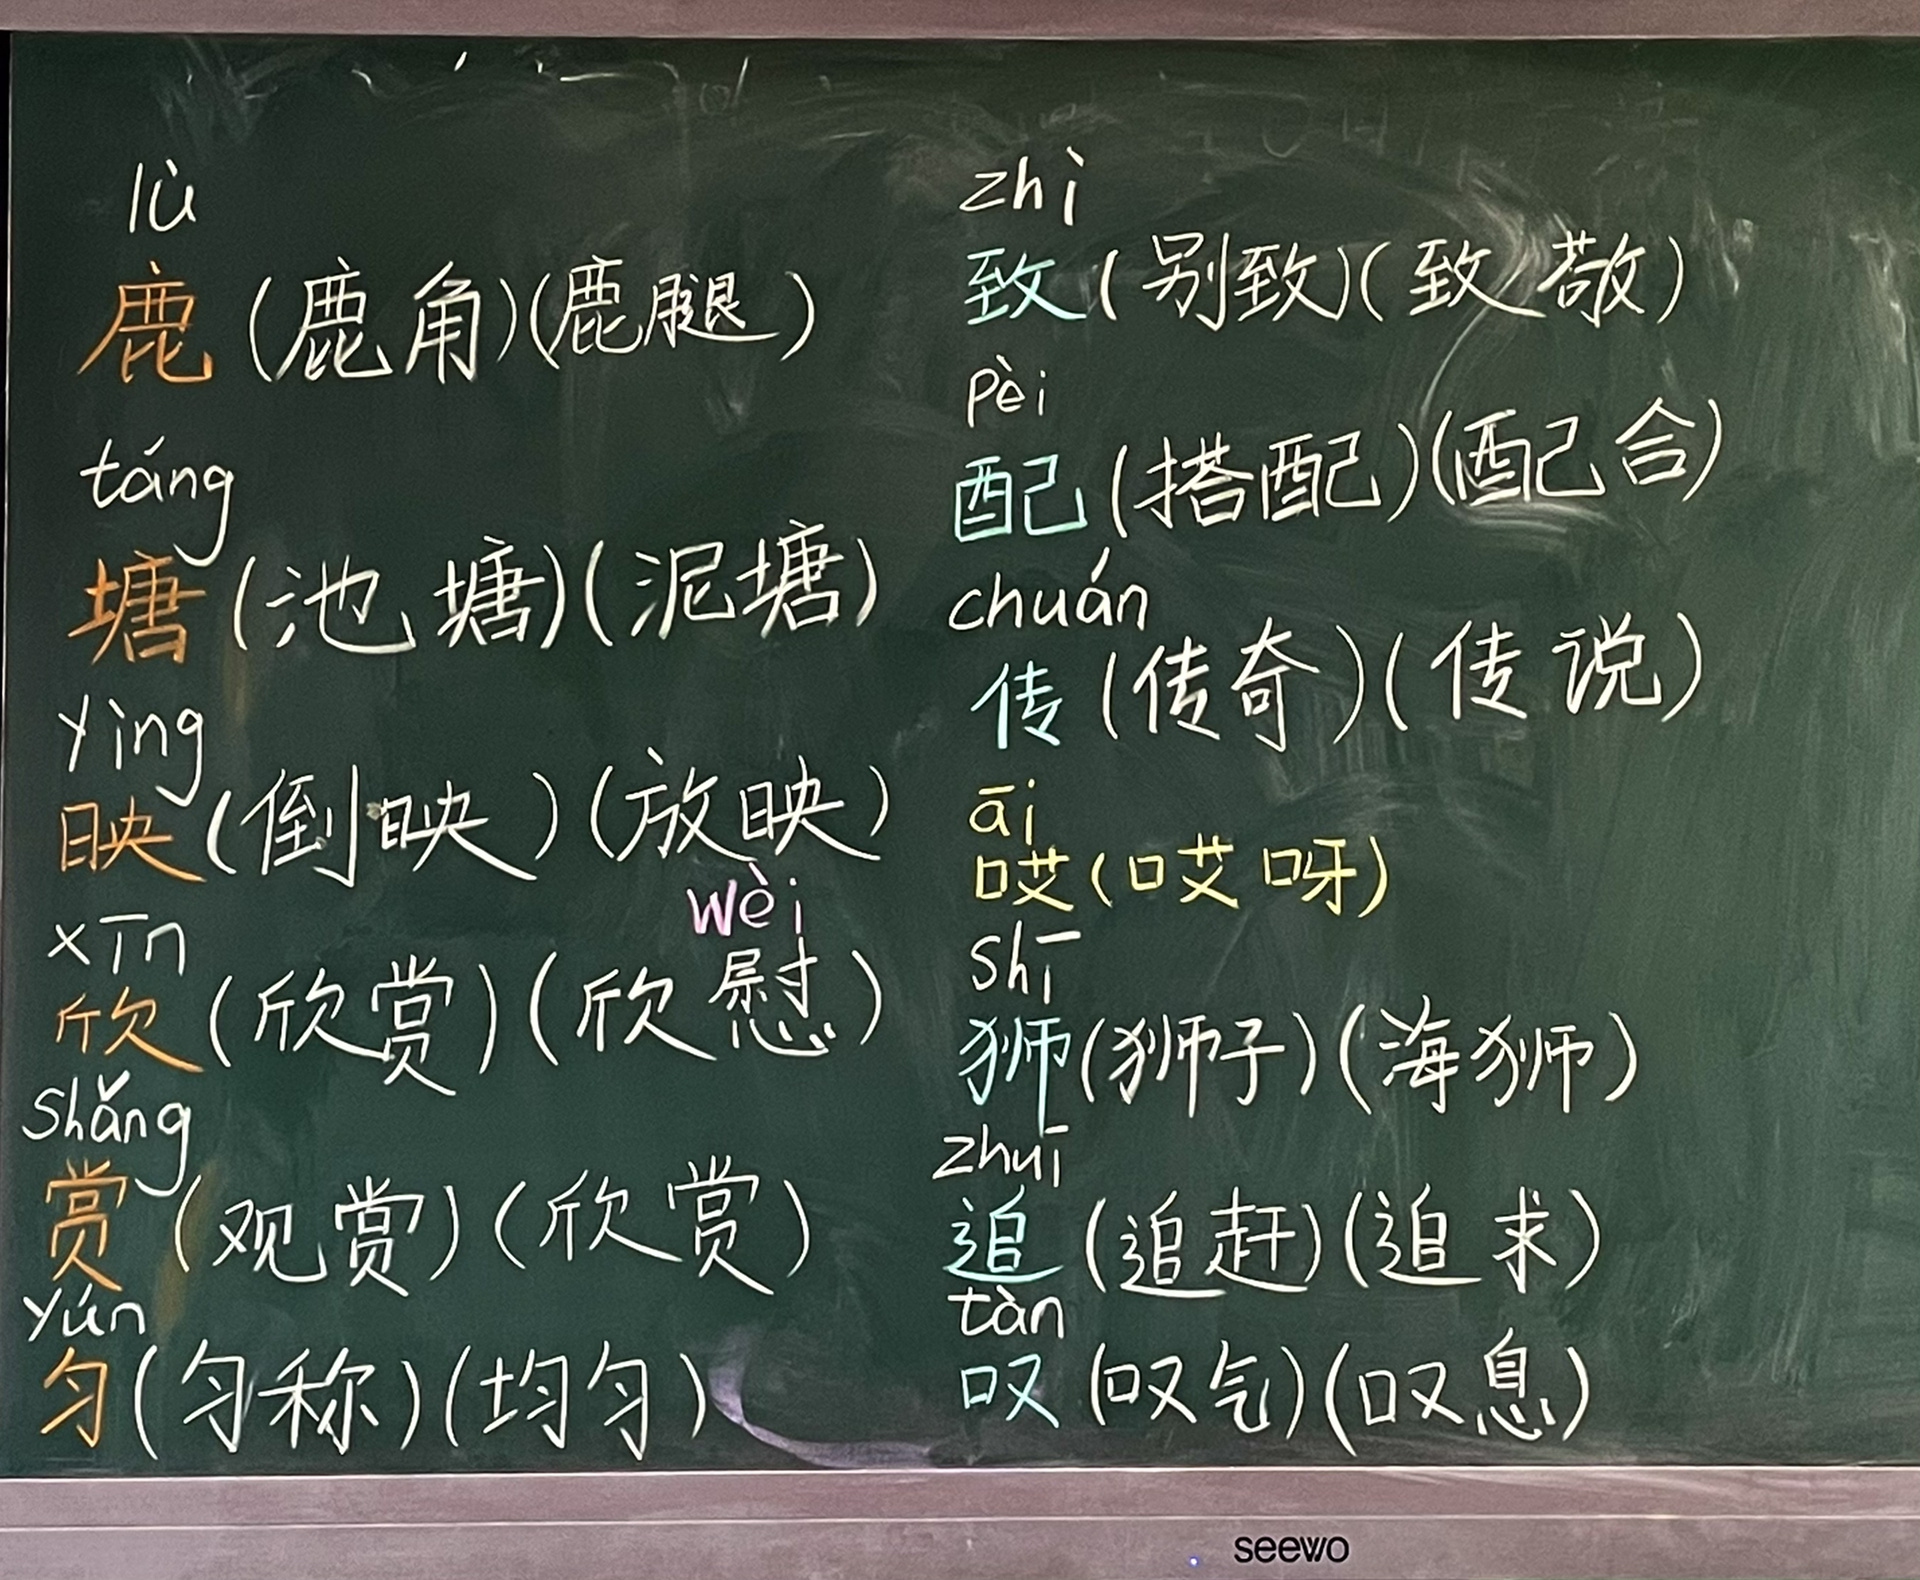 lù
鹿(鹿角)(鹿腿)
táng
塘(池塘)(泥塘)
yìng
映(倒映)(放映)
xīn
wèi
欣(欣赏)(欣慰)
shǎng
赏(观赏)(欣赏)
yún
匀(匀称)(均匀)
zhì
致(别致)(致敬)
pèi
配(搭配)(配合)
chuán
传(传奇)(传说)
āi
哎(哎呀)
shī
狮(狮子)(海狮)
zhuī
追(追赶)(追求)
tàn
叹(叹气)(叹息)
seewo